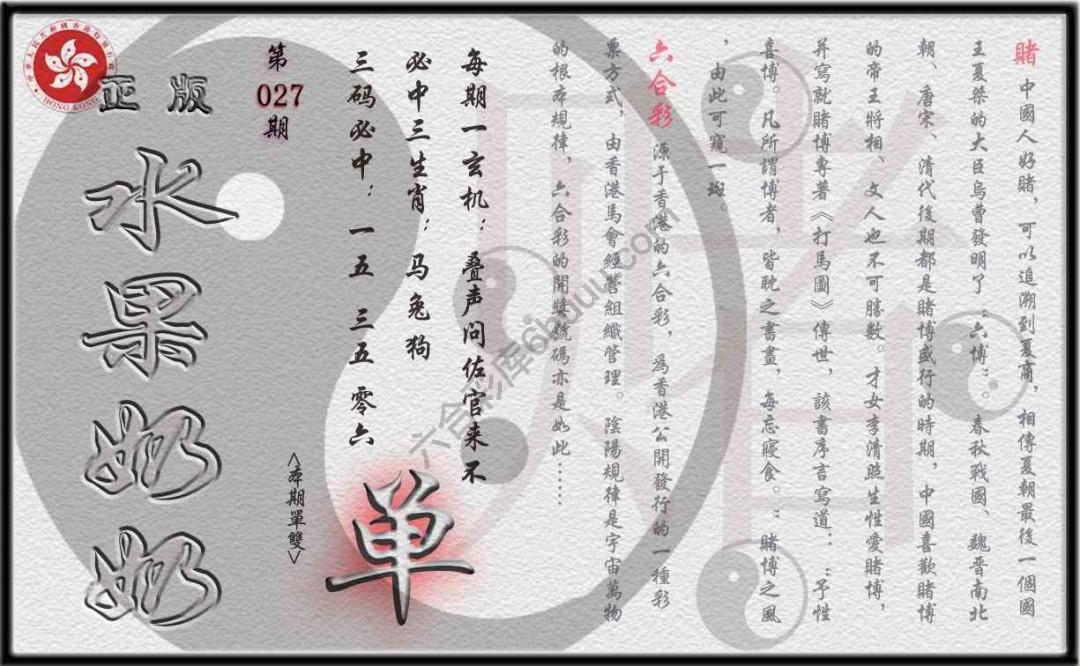 賭 中國人好賭，可以追溯到夏商，相傳夏朝最後一個國
王夏桀的大臣烏曹發明了“六博”。春秋戰國、魏晉南北
朝、唐宋、清代後期都是賭博盛行的時期，中國喜歡賭博
的帝王將相、文人也不可勝數。才女李清照生性愛賭博，
并寫就賭博專著《打馬圖》傳世，該書序言寫道：“予性
喜博。凡所謂博者，皆耽之書畫，每忘寢食。”賭博之風
，由此可窺一斑。
六合彩 源于香港的六合彩，為香港公開發行的一種彩
票方式，由香港馬會經營組織管理。陰陽規律是宇宙萬物
的根本規律，六合彩的開獎號碼亦是如此……
每期一玄机：叠声问佐官来不
必中三生肖：马兔狗
三码必中：一五 三五 零六
第
027
期
<本期單雙>
单
正版
水果奶奶
HONG KONG
六合彩库6huuu.com